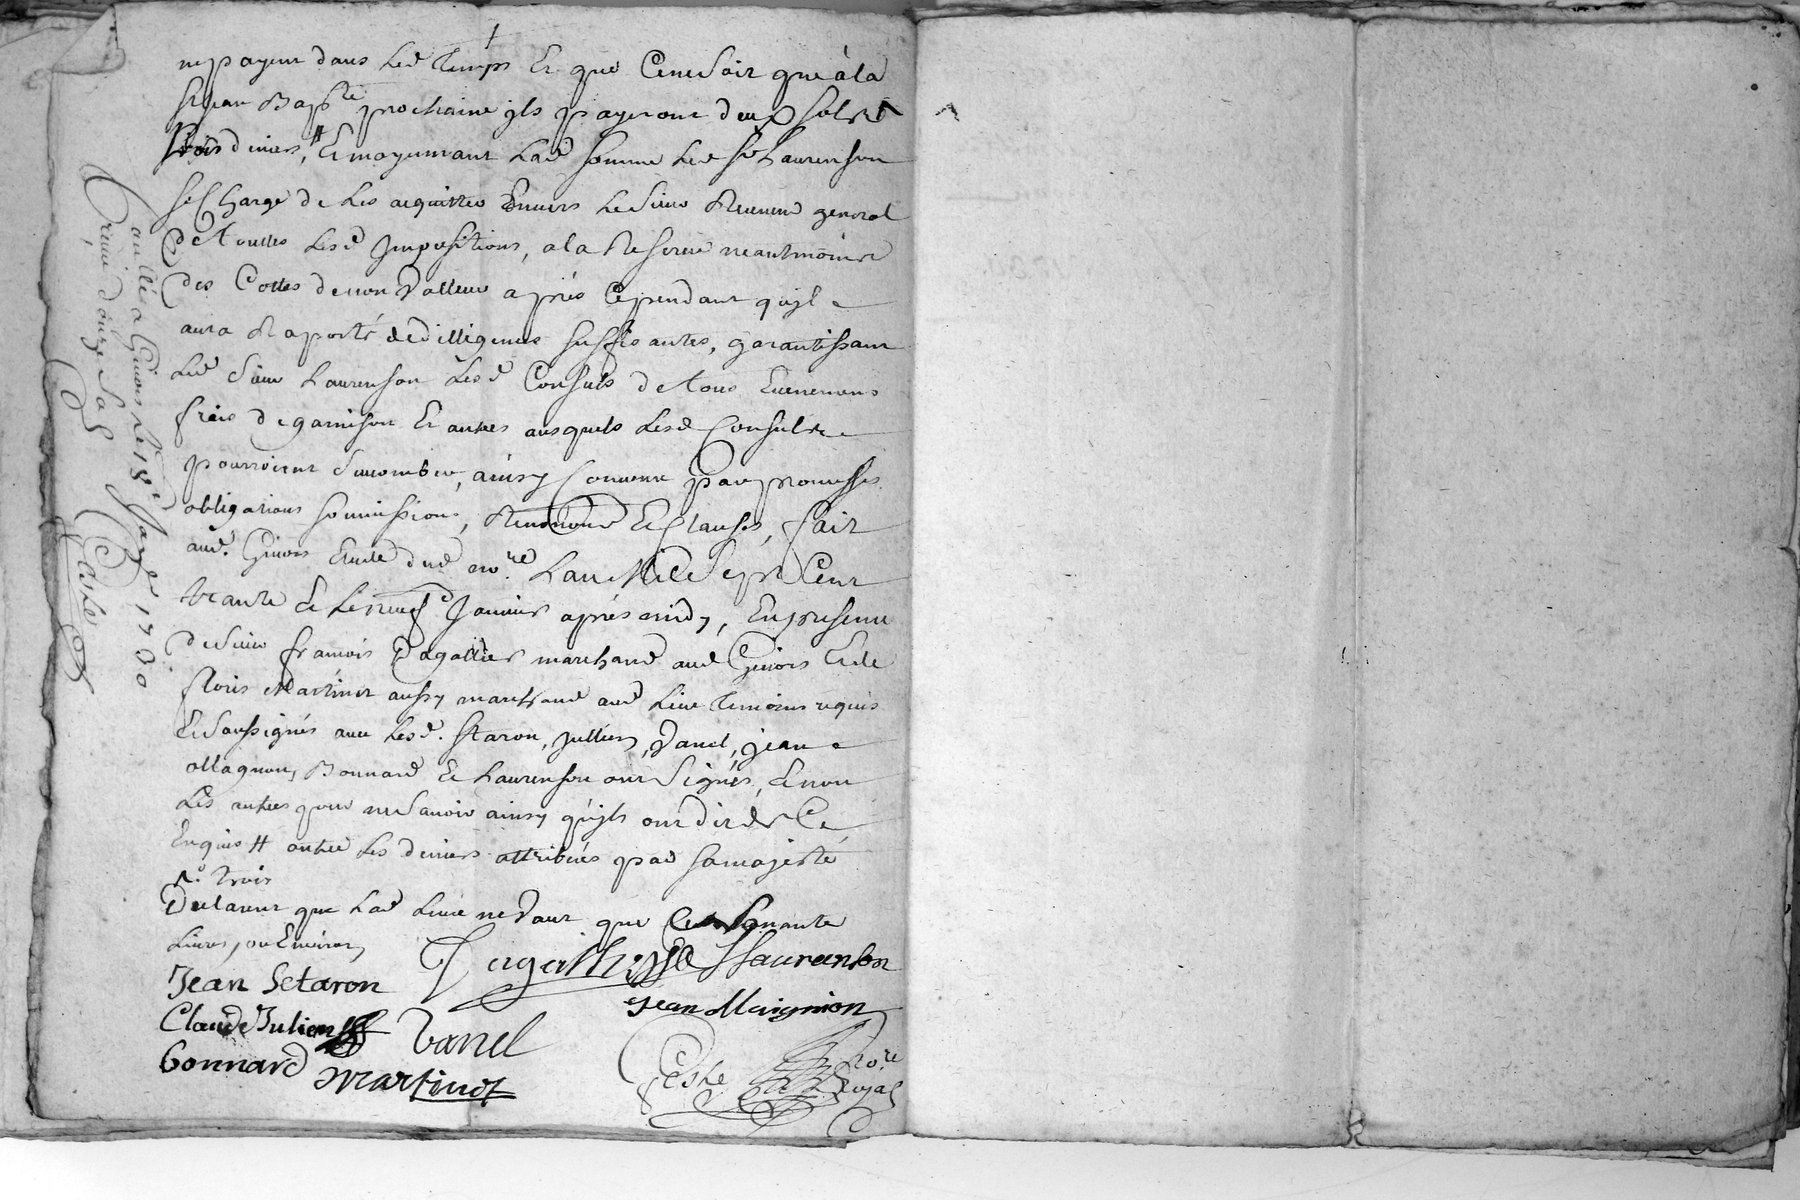 ne payent dans led temps Et que Cene Soit qu'à la
st jean Bapte prochaine jls payeront deux sols
trois deniers, # Et moyennant lad somme led sr Laurenson
se Charge de les acquitter Envers le Sieur Receveur general
de touttes lesd jmpositions, a la Reserve neantmoins
des Cottes de non Valleur aprés Cependant qujl
aura Raporté de dilligences suffisantes, garantissant
led Sieur Laurenson lesd Consuls de tous Evenemens
frais de garnison Et autres ausquels lesd Consuls
pourroient Succomber, ainsy Convenu par promesses
obligations soumissions, Renonces Et Clauses, fait
aud. Givors Etude dud nore. L'an Mil Sept Cent
trante Et le neuf Janvier aprés midy, En presence
de Sieur francois Dagallier marchand aud Givors Et de
floris Martinot aussy marchand aud lieu temoins requis
Et Soussignés avec lesd. staron, jullien, Vanel, jean
allagnon, Bonnard Et Laurenson ont Signés, Et non
les autres pour ne Savoir ainsy qu'jls ont dit de Ce
Enquis # outre les deniers attribués par sa majesté
trois
Declarent que lad levée ne Vaut que Cent soixante
livres, ou Environ,
Jean Setaron
Laurenson
Jean Alaignion
Claude Julien
Vanel
bonnard
martinot
Caste
nore
Royal
Conllé a Givors le 18e janver 1730
Receu douze sols
Caste